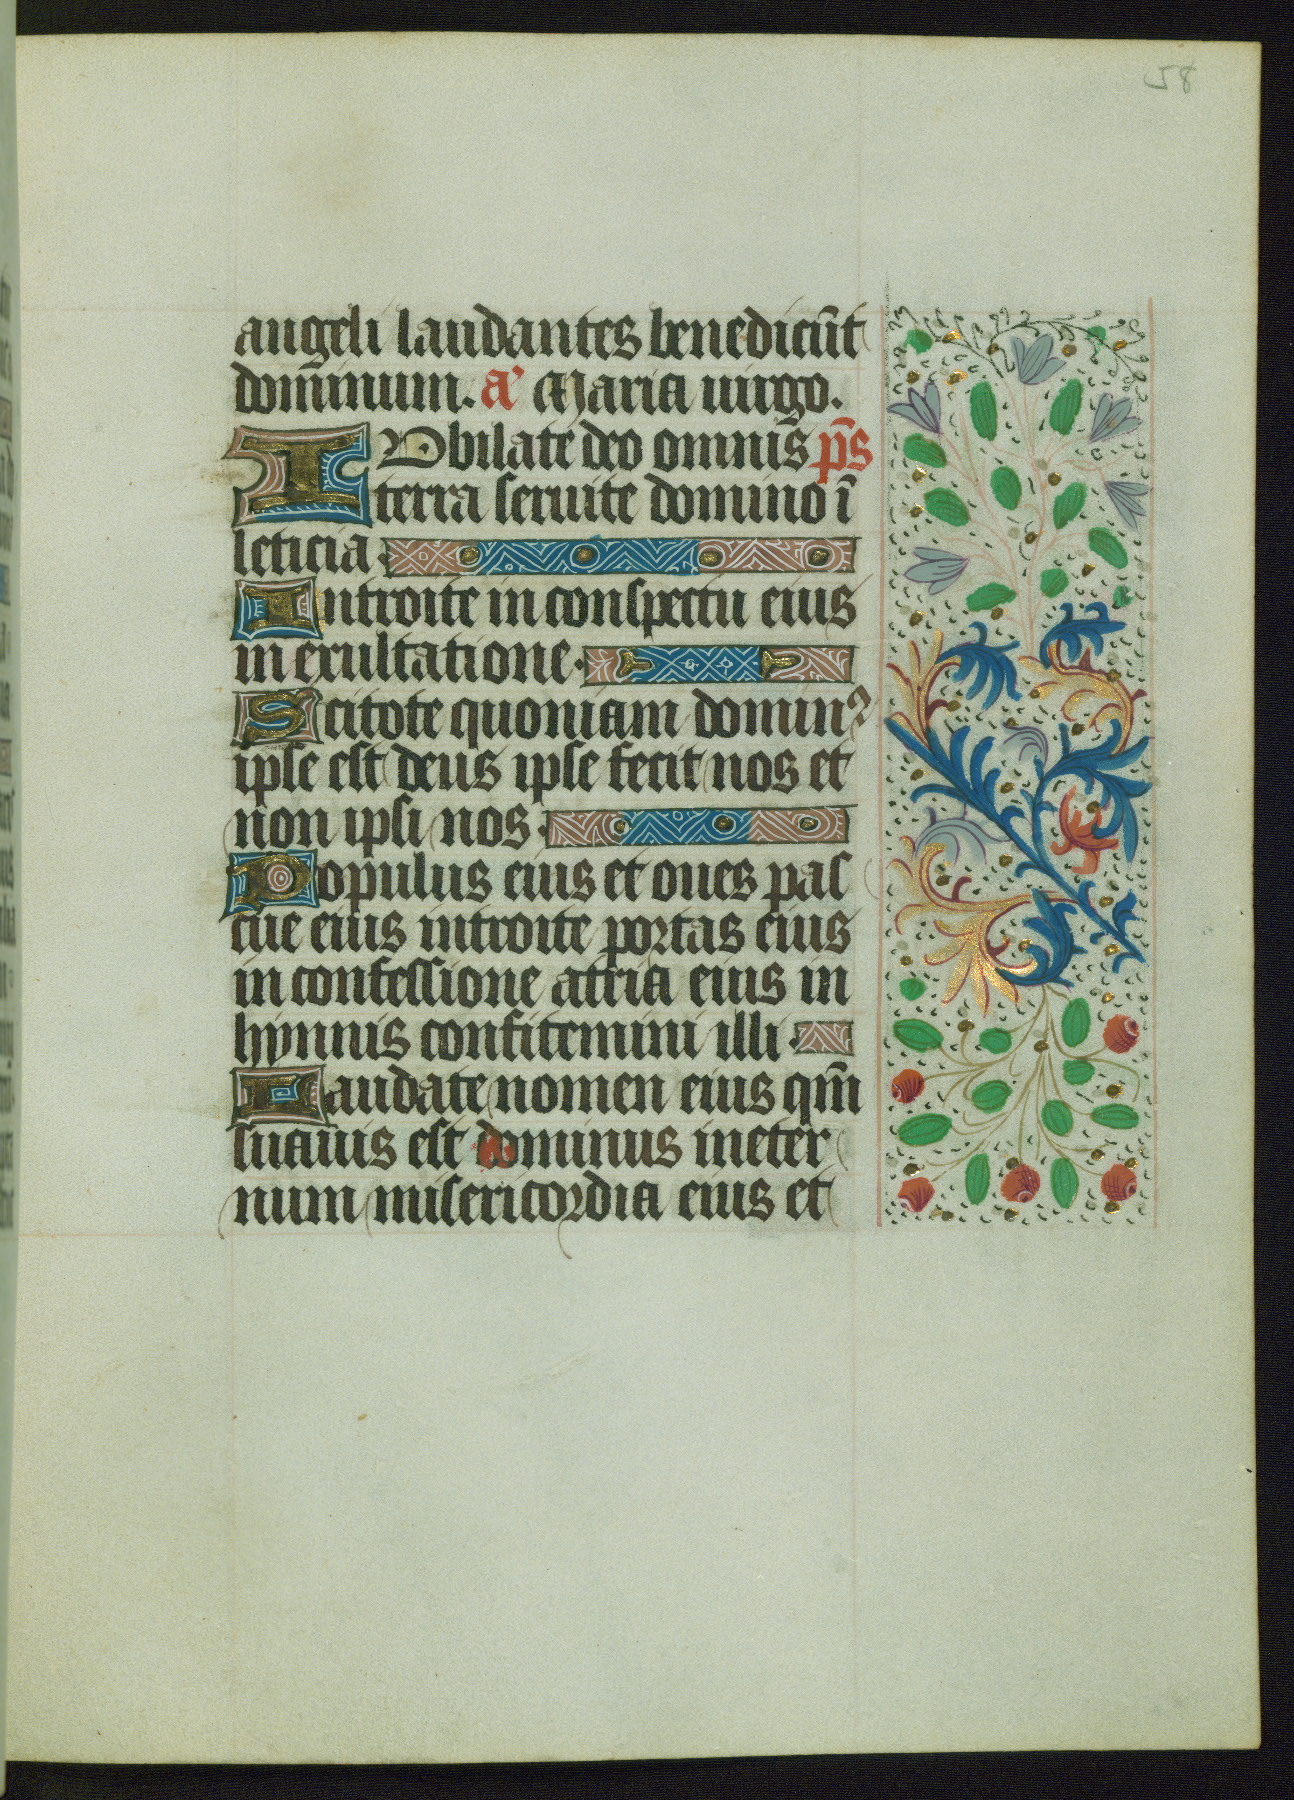 58
angeli laudantes benedicu̅t
dom̅inum. a' Maria uirgo.
IVbilate deo omnis̅ p̅s
terra seruite domino i̅
leticia
Introite in conspectu eius
in exultatione.
Scitote quoniam dominꝰ
ipse est deus ipse fecit nos et
non ipsi nos
Populus eius et oues pas
cue eius introite portas eius
in confessione atria eius in
hymnis confitemini illi.
Laudate nomen eius qm̅
suauis est dominus in eter
num misericordia eius et